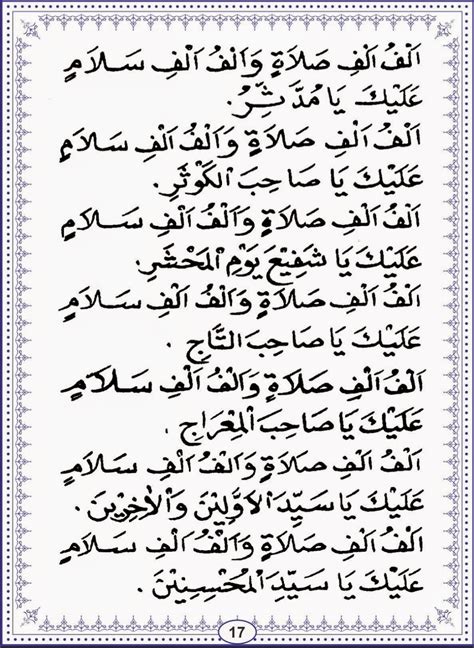 اَلْفُ اَلْفِ صَلَاةٍ وَاَلْفُ اَلْفِ سَلَامٍ
عَلَيْكَ يَا مُدَّثِّرُ.
اَلْفُ اَلْفِ صَلَاةٍ وَاَلْفُ اَلْفِ سَلَامٍ
عَلَيْكَ يَا صَاحِبَ الْكَوْثَرِ.
اَلْفُ اَلْفِ صَلَاةٍ وَاَلْفُ اَلْفِ سَلَامٍ
عَلَيْكَ يَا شَفِيْعَ يَوْمِ الْمَحْشَرِ.
اَلْفُ اَلْفِ صَلَاةٍ وَاَلْفُ اَلْفِ سَلَامٍ
عَلَيْكَ يَا صَاحِبَ التَّاجِ.
اَلْفُ اَلْفِ صَلَاةٍ وَاَلْفُ اَلْفِ سَلَامٍ
عَلَيْكَ يَا صَاحِبَ الْمِعْرَاجِ.
اَلْفُ اَلْفِ صَلَاةٍ وَاَلْفُ اَلْفِ سَلَامٍ
عَلَيْكَ يَا سَيِّدَ الْاَوَّلِيْنَ وَالْاٰخِرِيْنَ.
اَلْفُ اَلْفِ صَلَاةٍ وَاَلْفُ اَلْفِ سَلَامٍ
عَلَيْكَ يَا سَيِّدَ الْمُحْسِنِيْنَ.
17